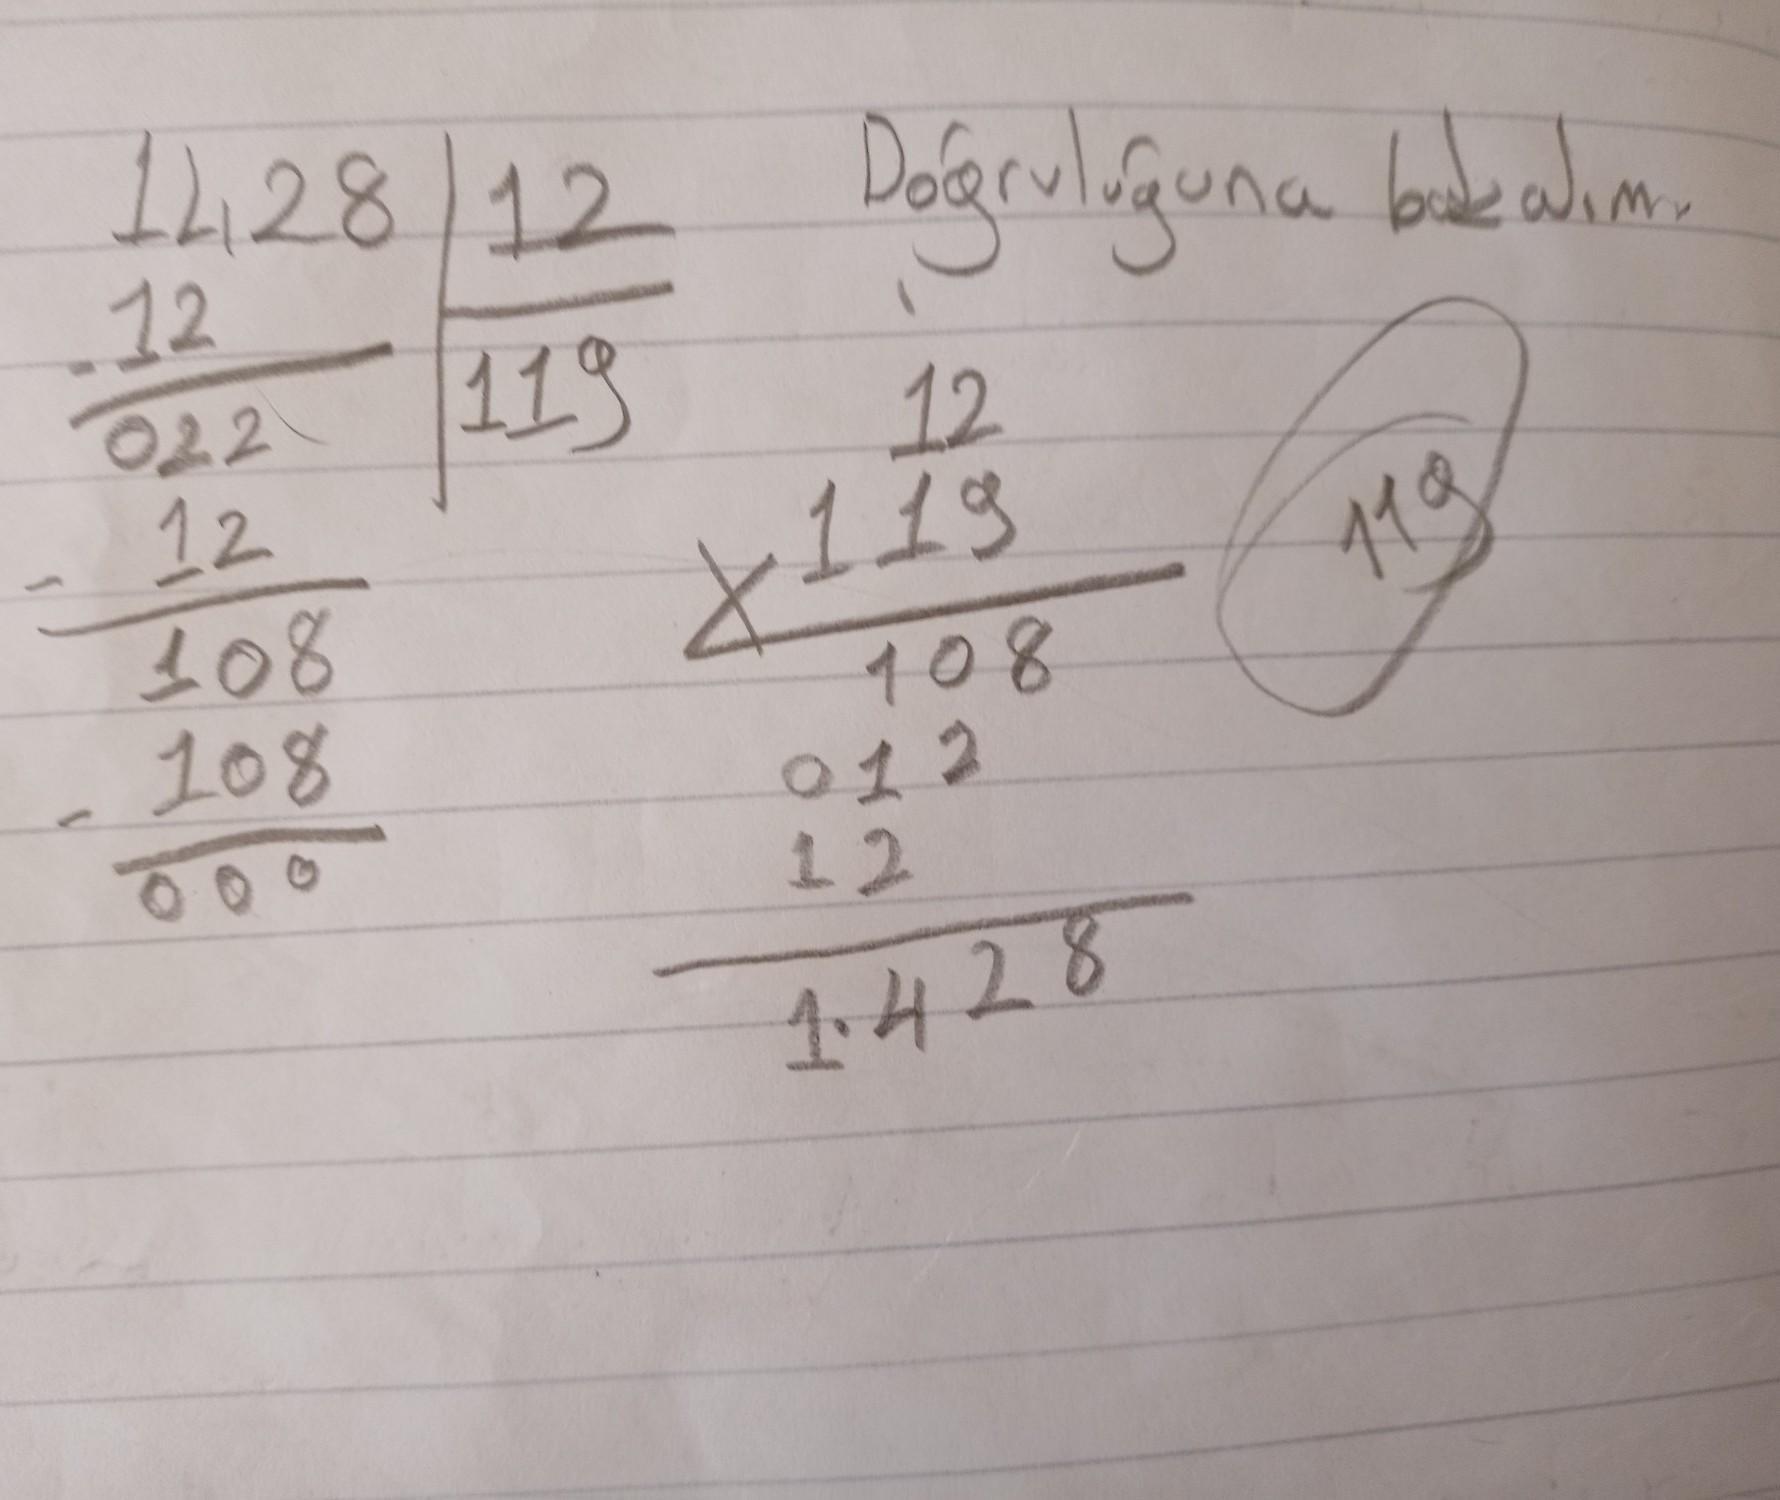 1428 12
-12
022
119
-12
108
-108
000
Doğruluğuna bakalım.
12
x119
108
012
12
1.428
119